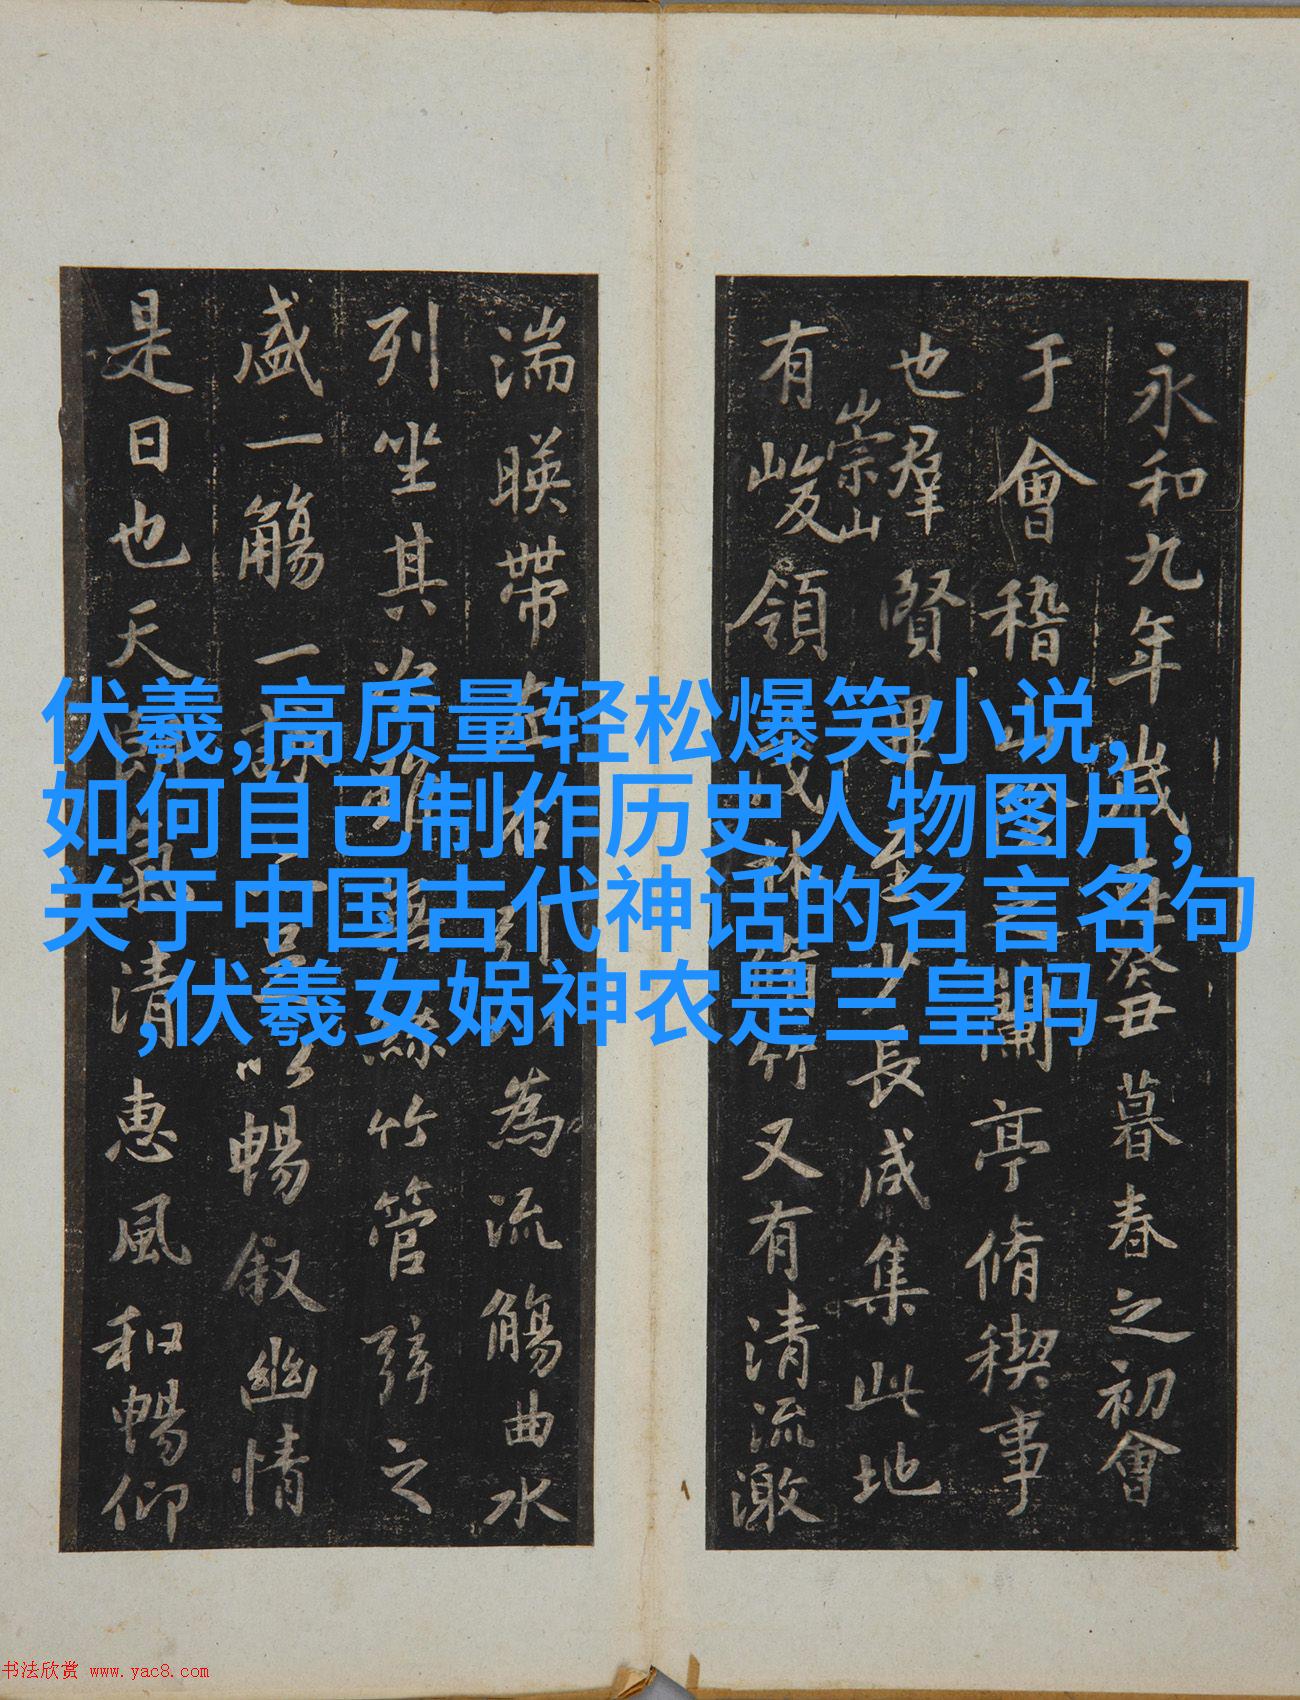 永和九年歲在癸丑暮春之初會
于會稽山陰之蘭亭脩禊事
也羣賢畢至少長咸集此地
崇山
有峻領茂林脩竹又有清流激
湍暎帶左右引以為流觴曲水
列坐其次雖無絲竹管弦之
盛一觴一詠亦足以暢叙幽情
是日也天朗氣清惠風和暢仰
伏羲,高质量轻松爆笑小说,
如何自己制作历史人物图片,
关于中国古代神话的名言名句
,伏羲女娲神农是三皇吗
书法欣赏 www.yac8.com